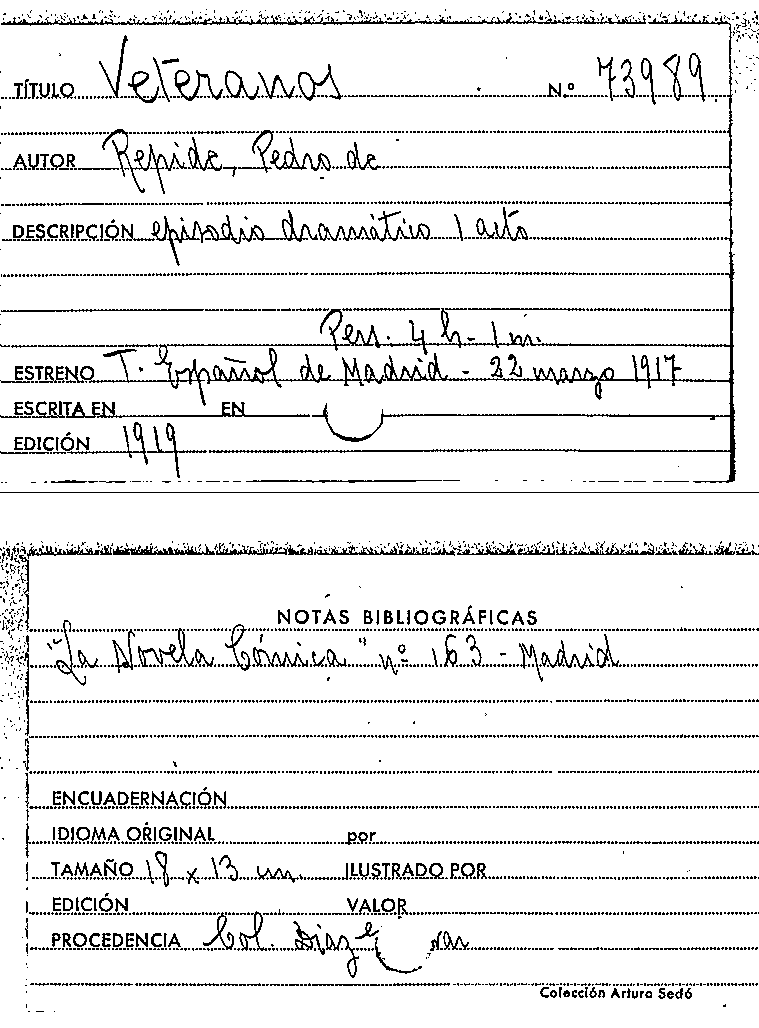 TÍTULO Veteranos N.º 73989
AUTOR Repide, Pedro de
DESCRIPCIÓN episodio dramático 1 acto
Pers. 4 h - 1 m.
ESTRENO T. Español de Madrid - 22 marzo 1917
ESCRITA EN EN
EDICIÓN 1919
NOTAS BIBLIOGRÁFICAS
"La Novela Cómica" nº 163 - Madrid
ENCUADERNACIÓN
IDIOMA ORIGINAL por
TAMAÑO 18 x 13 cm. ILUSTRADO POR
EDICIÓN VALOR
PROCEDENCIA Col. Díaz
Colección Arturo Sedó